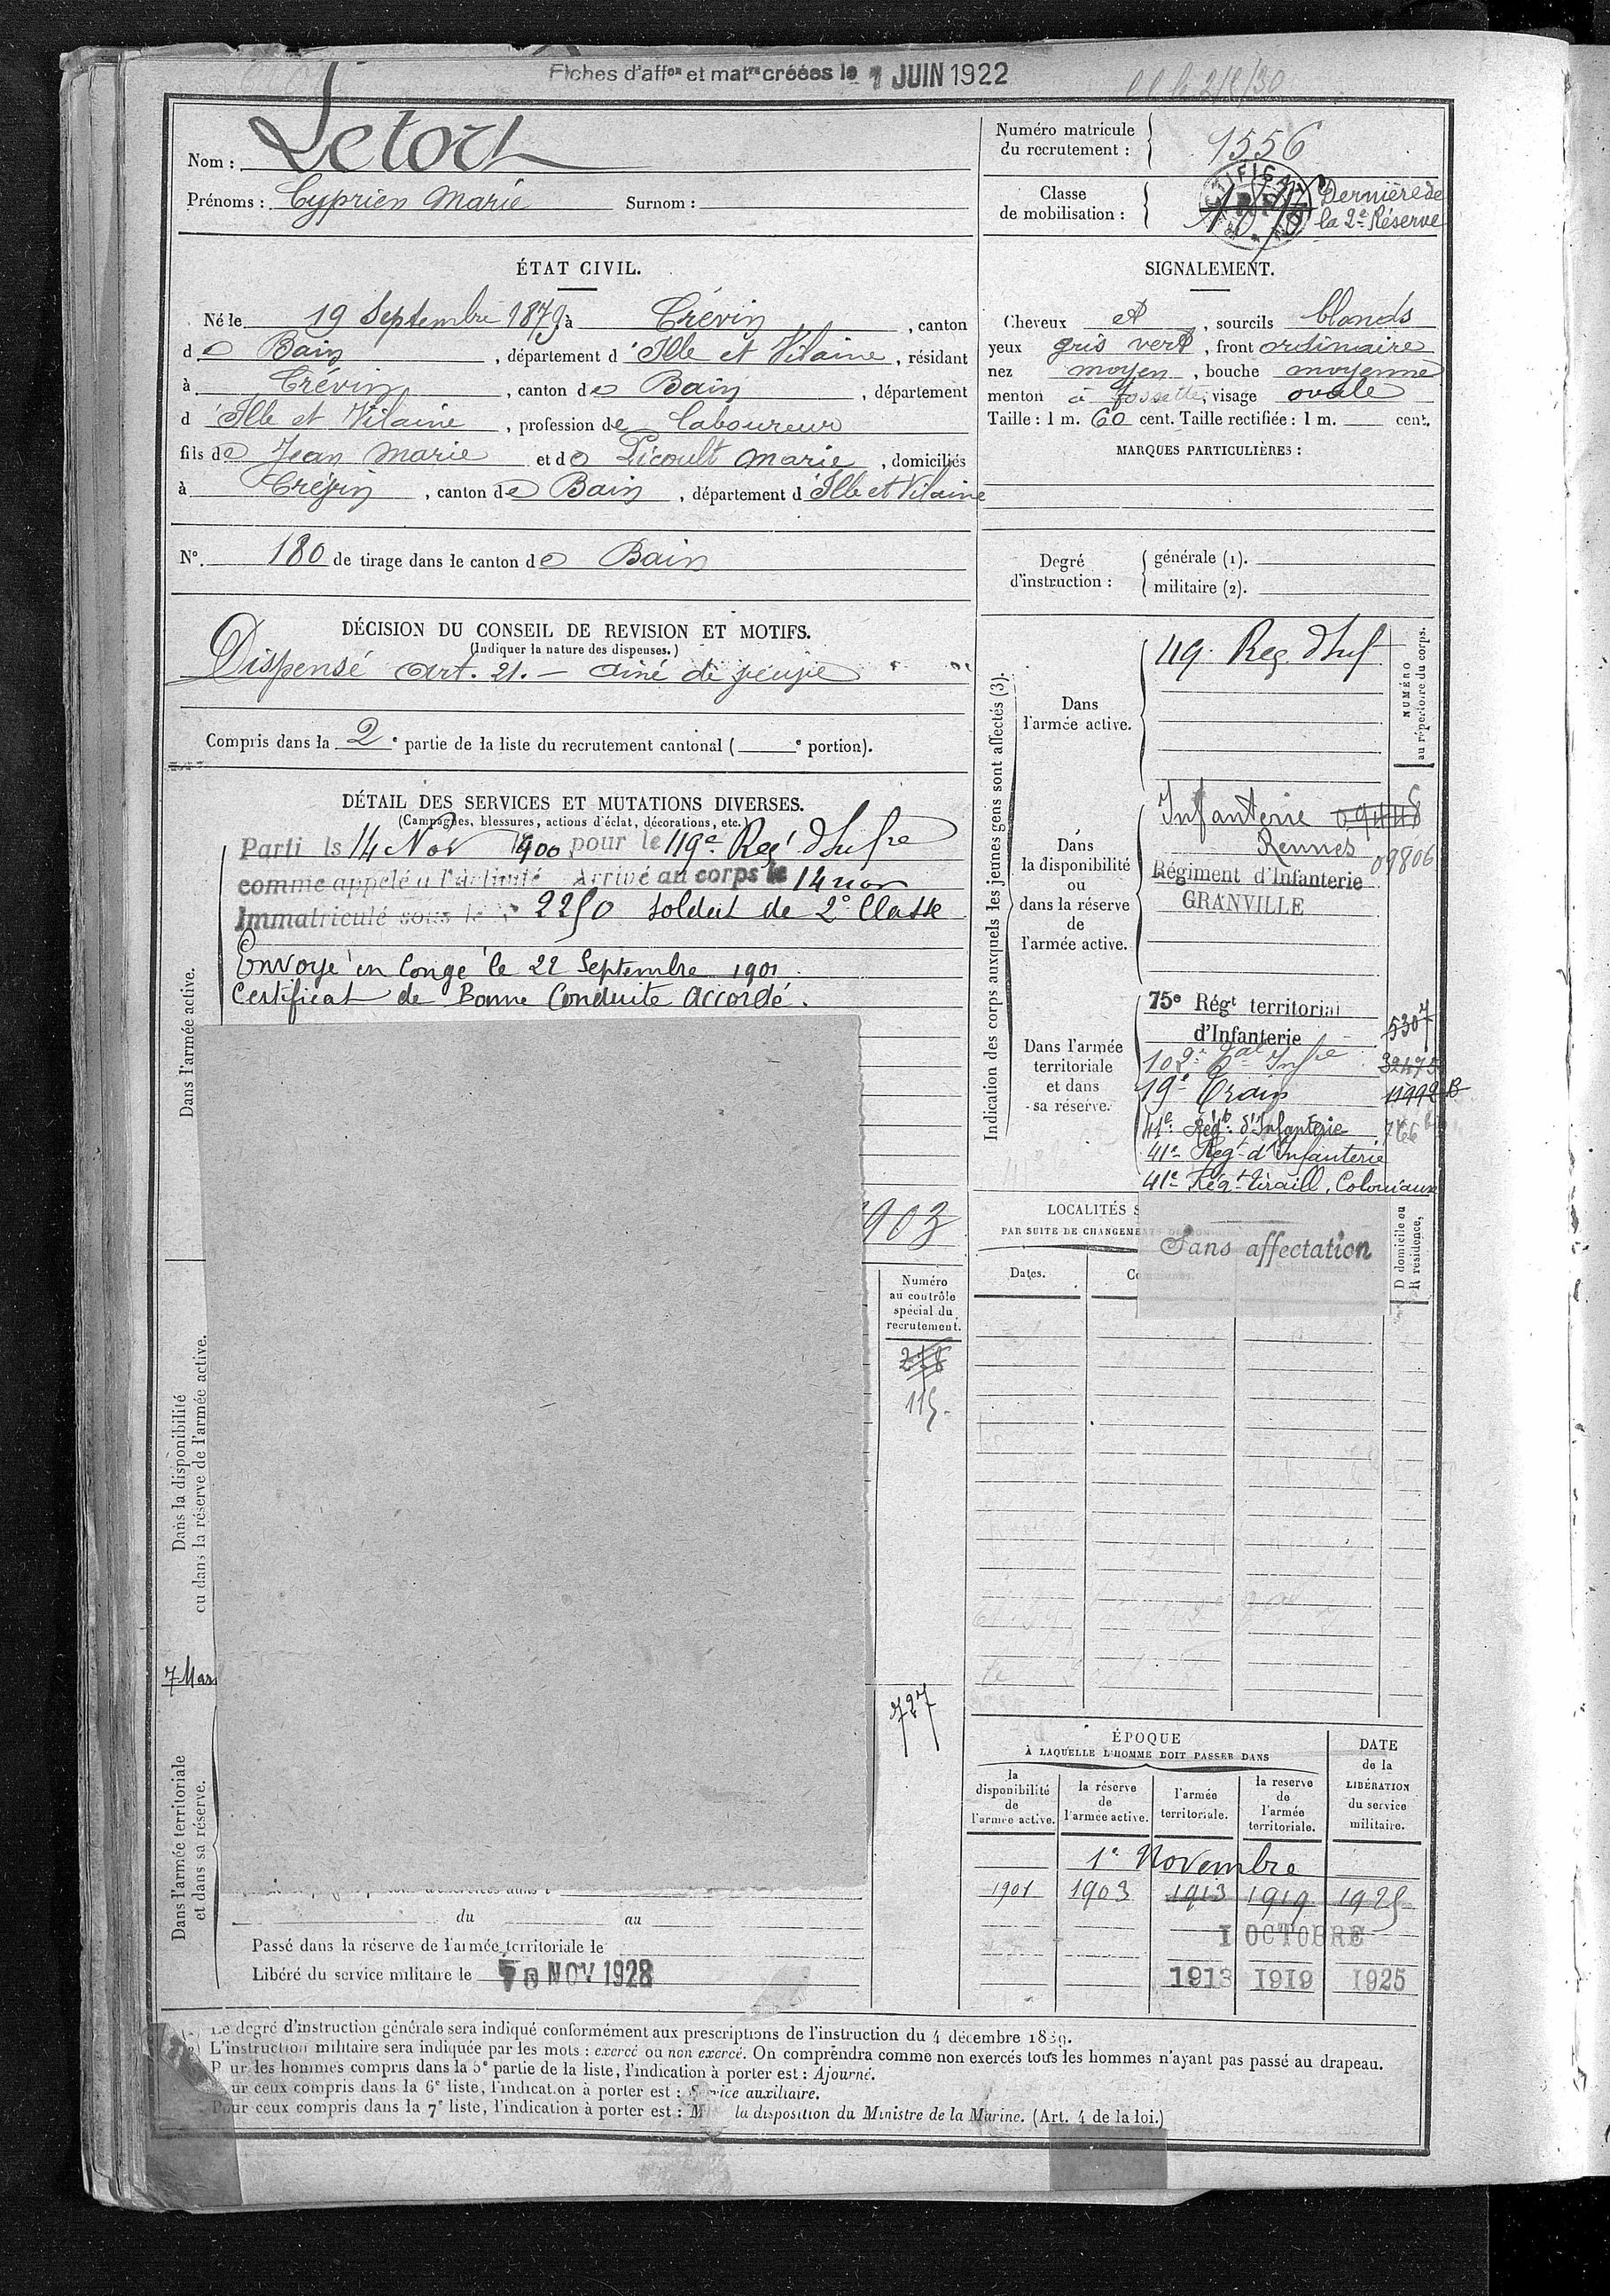 Fiches d'affon et matre créées le 1 JUIN 1922
Nom : Letort
Prénoms : Cyprien Marie Surnom :
Numéro matricule
du recrutement : 1556
Classe
de mobilisation :
Dernière de
la 2e Réserve
ÉTAT CIVIL.
Né le 19 Septembre 1879, à Crévin, canton
de Bain, département d'Ille et Vilaine, résidant
à Crévin, canton de Bain, département
d'Ille et Vilaine, profession de laboureur
fils de Jean Marie et de Picoult Marie, domiciliés
à Crévin, canton de Bain, département d'Ille et Vilaine
N°. 180 de tirage dans le canton de Bain
SIGNALEMENT.
Cheveux et, sourcils blonds
yeux gris vert, front ordinaire
nez moyen, bouche moyenne
menton à fossette, visage ovale
Taille : 1 m. 60 cent. Taille rectifiée : 1 m. cent.
MARQUES PARTICULIÈRES :
Degré
d'instruction :
générale (1).
militaire (2).
DÉCISION DU CONSEIL DE REVISION ET MOTIFS.
(Indiquer la nature des dispenses.)
Dispensé art. 21. – ainé de
Compris dans la 2e partie de la liste du recrutement cantonal ( e portion).
DÉTAIL DES SERVICES ET MUTATIONS DIVERSES.
(Campagnes, blessures, actions d'éclat, décorations, etc.)
Dans l'armée active.
Parti le 14 Nov 1900 pour le 119e Regt d'Infre
comme appelé à l'activité Arrivé au corps le 14 nov
Immatriculé sous le n° 2250 soldat de 2e Classe
Envoyé en congé le 22 Septembre 1901.
Certificat de Bonne Conduite Accordé.
1903
Dans la disponibilité
ou dans la réserve de l'armée active.
Numéro
au contrôle
spécial du
recrutement.
115.
7 Mar
727
Dans l'armée territoriale
et dans sa réserve.
du au
Passé dans la réserve de l'armée territoriale le
Libéré du service militaire le 10 NOV 1928
Indication des corps auxquels les jeunes gens sont affectés (3).
NUMÉRO
au répertoire du corps.
Dans
l'armée active.
119. Reg d'Inf
Dans
la disponibilité
ou
dans la réserve
de
l'armée active.
Infanterie
Rennes
Régiment d'Infanterie 09806
GRANVILLE
Dans l'armée
territoriale
et dans
sa réserve.
75e Régt territorial
d'Infanterie 5307
102e tal Infre
19e Train 11992 B
41e Régt d'Infanterie
41e Regt d'Infanterie
41e Régt tiraill. Coloniaux
LOCALITÉS S
PAR SUITE DE CHANGEME
Sans affectation
D domicile ou
R résidence.
Dates.
ÉPOQUE
À LAQUELLE L'HOMME DOIT PASSER DANS
la
disponibilité
de
l'armée active.
la réserve
de
l'armée active.
l'armée
territoriale.
la reserve
de
l'armée
territoriale.
DATE
de la
LIBÉRATION
du service
militaire.
1er Novembre
1901 1903 1913 1919 1925
1 OCTOBRE
1913 1919 1925
Le degré d'instruction générale sera indiqué conformément aux prescriptions de l'instruction du 4 décembre 1889.
L'instruction militaire sera indiquée par les mots : exercé ou non exercé. On comprendra comme non exercés tous les hommes n'ayant pas passé au drapeau.
Pour les hommes compris dans la 5e partie de la liste, l'indication à porter est : Ajourné.
ur ceux compris dans la 6e liste, l'indication à porter est : Service auxiliaire.
Pour ceux compris dans la 7e liste, l'indication à porter est : M la disposition du Ministre de la Marine. (Art. 4 de la loi.)